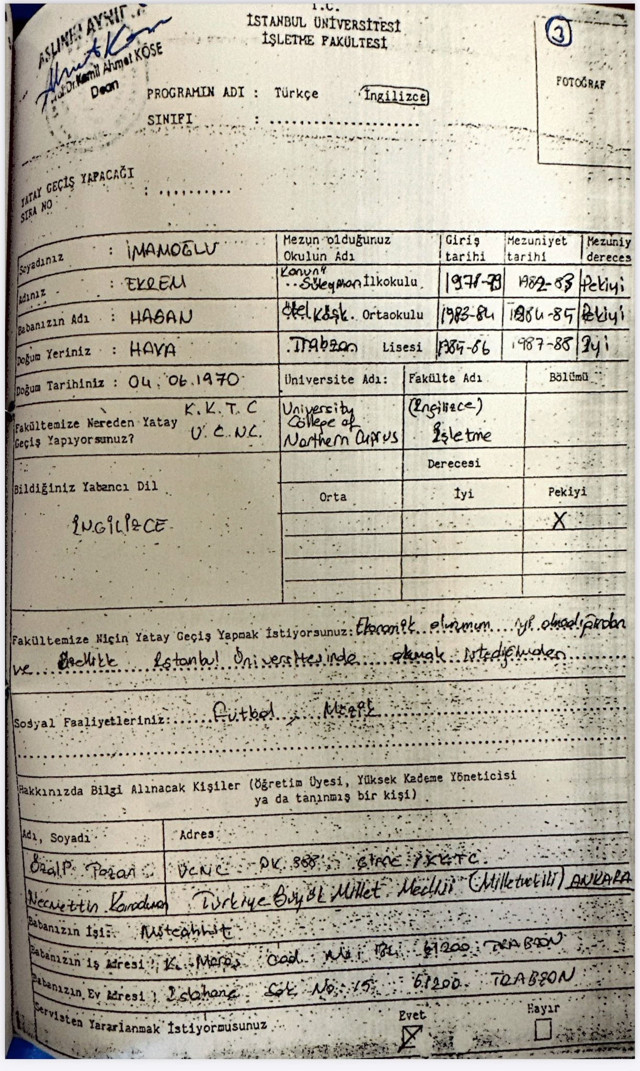 T.C.
İSTANBUL ÜNİVERSİTESİ
İŞLETME FAKÜLTESİ
3
ASLININ AYNIDIR
Prof.Dr.Kamil Ahmet KÖSE
Dean
FOTOĞRAF
PROGRAMIN ADI : Türkçe İngilizce
SINIFI :
YATAY GEÇİŞ YAPACAĞI
SIRA NO :
Soyadınız : İMAMOĞLU
Adınız : EKREM
Babanızın Adı : HASAN
Doğum Yeriniz : HAVA
Doğum Tarihiniz : 04.06.1970
Mezun olduğunuz Okulun Adı Giriş tarihi Mezuniyet tarihi Mezuniy dereces
Kanuni Süleyman İlkokulu 1978-79 1982-83 Pekiyi
Özel Köşk Ortaokulu 1983-84 1984-85 Pekiyi
Trabzon Lisesi 1985-86 1987-88 İyi
Üniversite Adı: Fakülte Adı Bölümü
Fakültemize Nereden Yatay Geçiş Yapıyorsunuz? K.K.T.C U.C.N.C.
University College of Northern Cyprus (İngilizce) İşletme
Bildiğiniz Yabancı Dil
İNGİLİZCE
Derecesi
Orta İyi Pekiyi
X
Fakültemize Niçin Yatay Geçiş Yapmak İstiyorsunuz: Ekonomik durumum iyi olmadığından
ve özellikle İstanbul Üniversitesinde okumak istediğimden
Sosyal Faaliyetleriniz: Futbol, Müzik
Hakkınızda Bilgi Alınacak Kişiler (Öğretim Üyesi, Yüksek Kademe Yöneticisi
ya da tanınmış bir kişi)
Adı, Soyadı Adres
UCNC PK 388 Girne / KKTC
Necmettin Karaduman Türkiye Büyük Millet Meclisi (Milletvekili) ANKARA
Babanızın İşi: Müteahhit
Babanızın İş Adresi: K. Maraş Cad. 61200 TRABZON
Babanızın Ev Adresi: Islahane Sok No: 15 61200 TRABZON
Servisten Yararlanmak İstiyormusunuz Evet Hayır